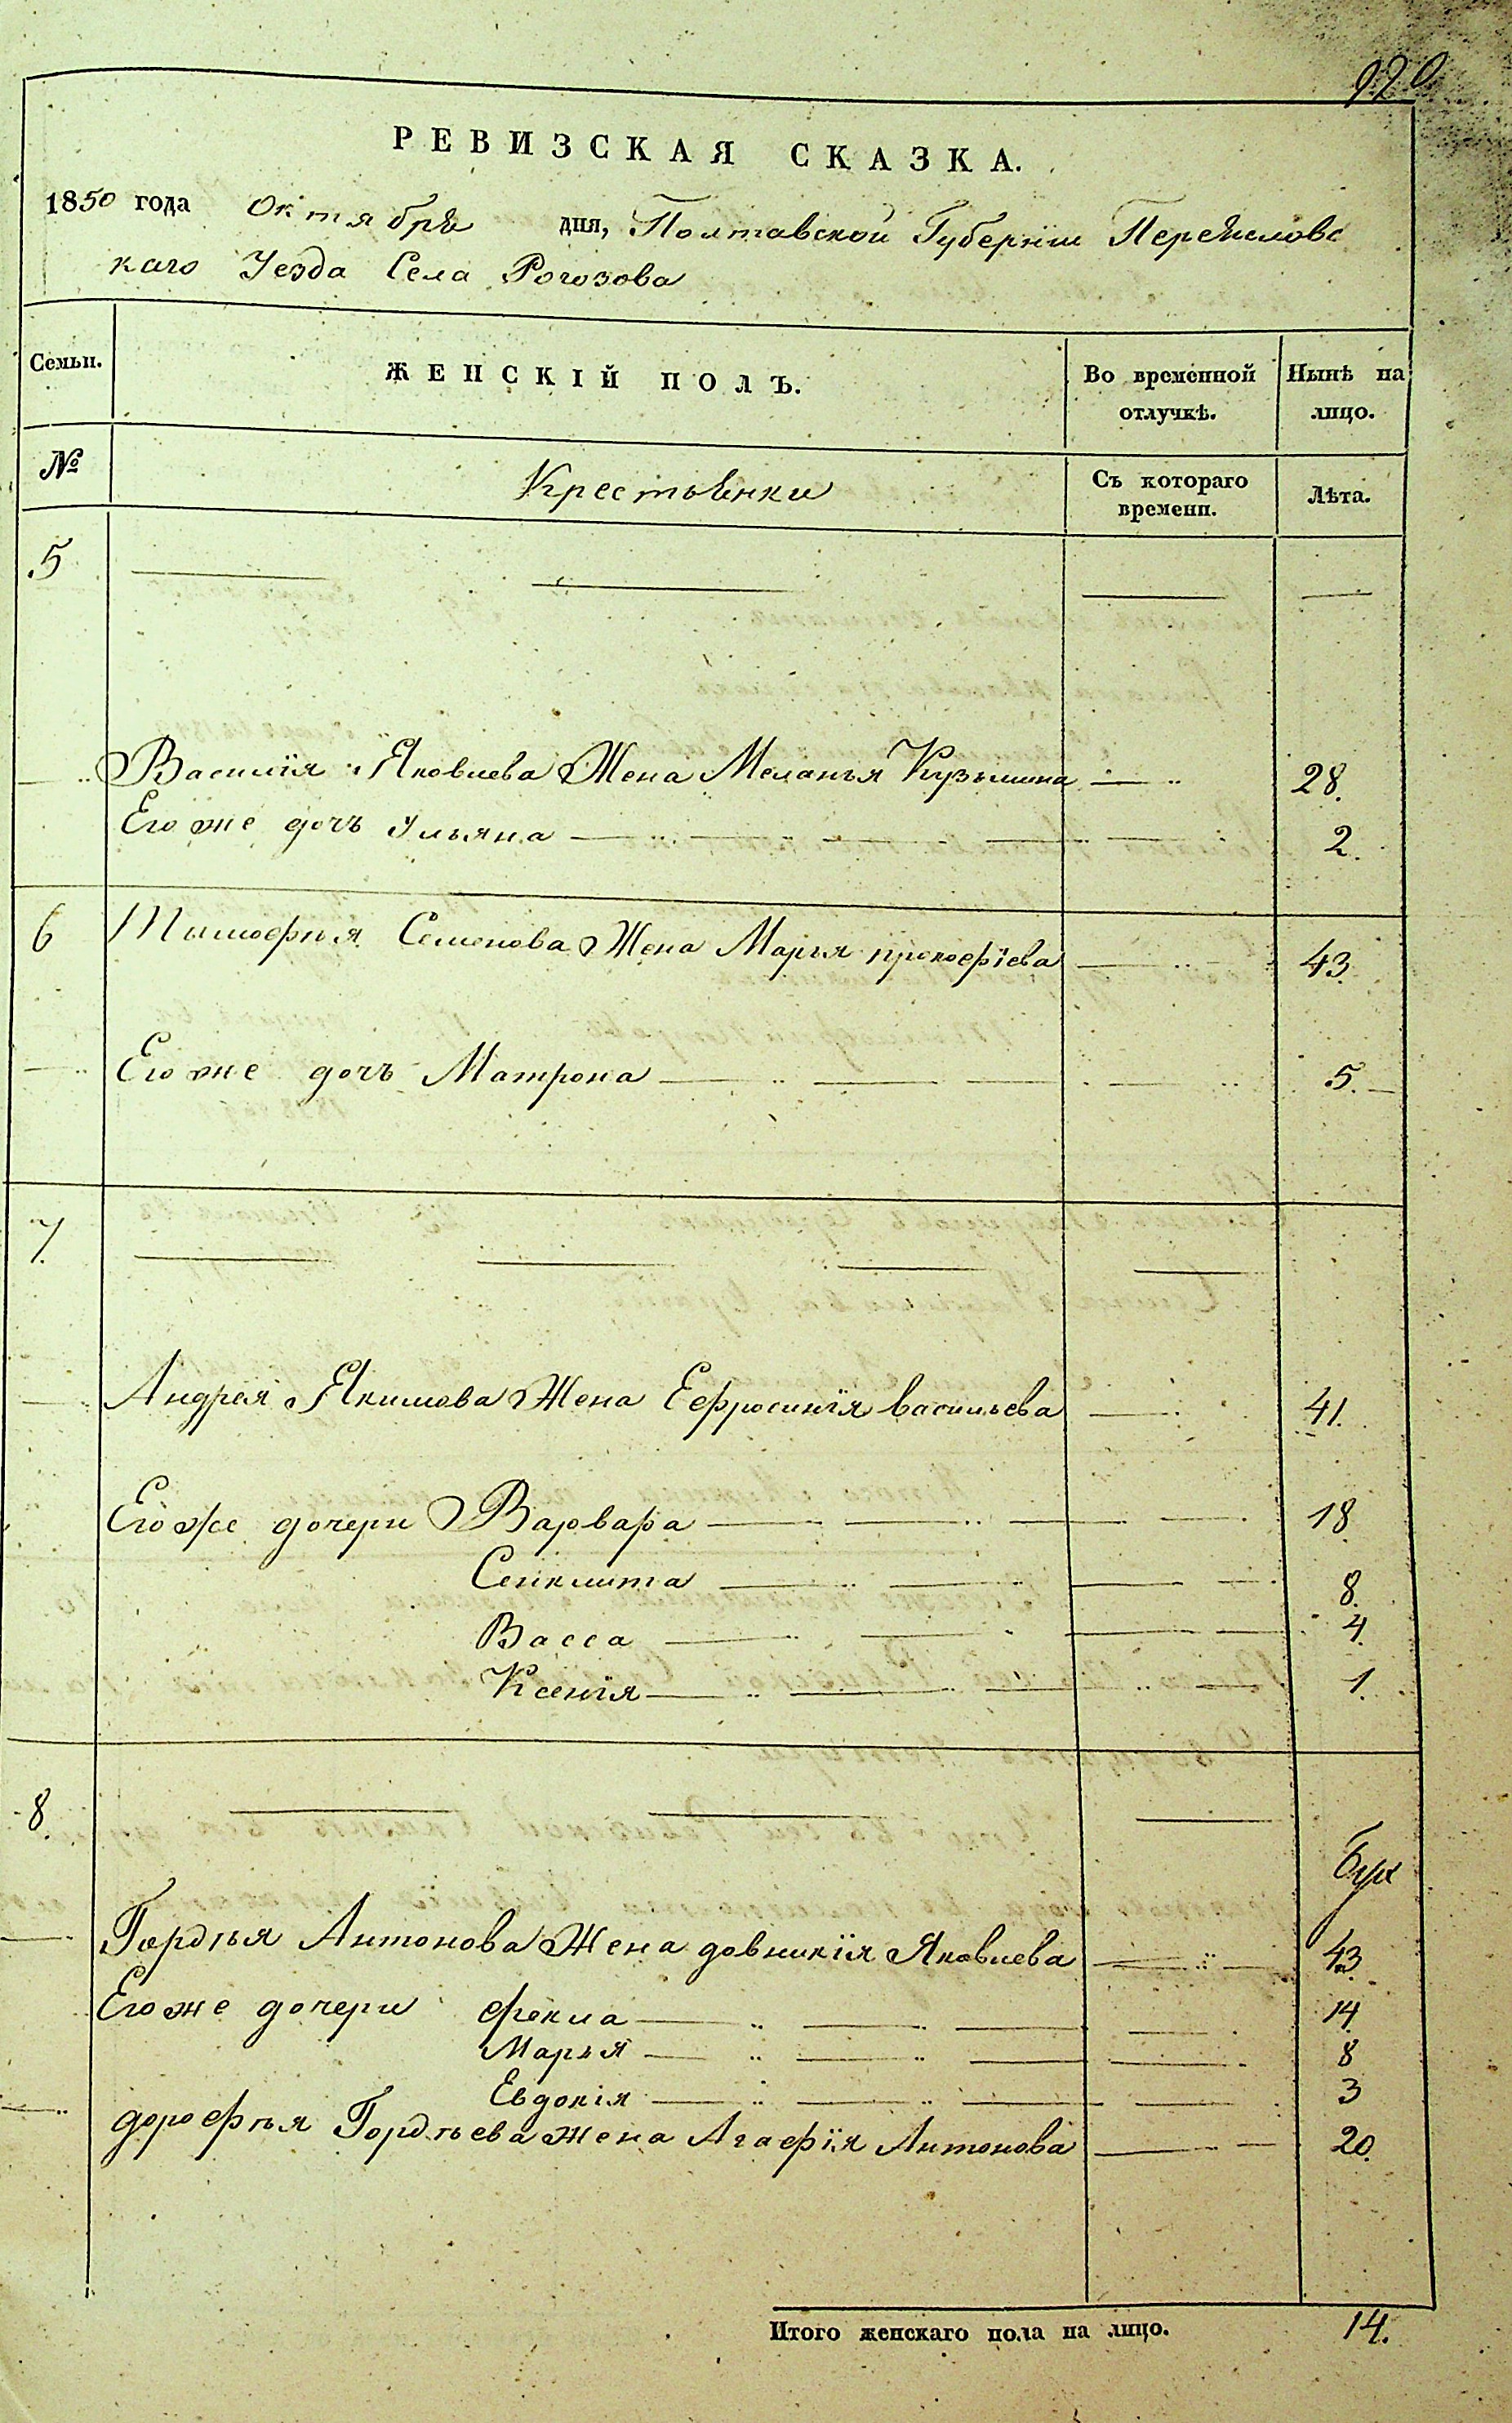 920
РЕВИЗСКАЯ СКАЗКА.
1850 года Октября дня, Полтавской Губернии Переяслов
скаго Уезда Села Рогозова
Семьи. ЖЕНСКІЙ ПОЛЪ. Во временной отлучкѣ. Нынѣ на лицо.
№ Крестьянки Съ котораго времени. Лѣта.
5
Василія Яковлева Жена Меланья Кузьмина 28.
Его же дочь Ульяна 2.
6 Тимофѣя Семенова Жена Марья прокофіева 43.
Его же дочь Матрона 5.
7.
Андрея Якимова Жена Ефросинія васильева 41.
Его же дочери Варвара 18
Сенклита 8.
Васса 4.
Ксенія 1.
8.
Гордѣя Антонова Жена довникія Яковлева 43.
Его же дочери Фекла 14.
Марья 8
Евдокія 3
дорофѣя Гордѣева жена Агафія Антонова 20.
Итого женскаго пола на лицо. 14.